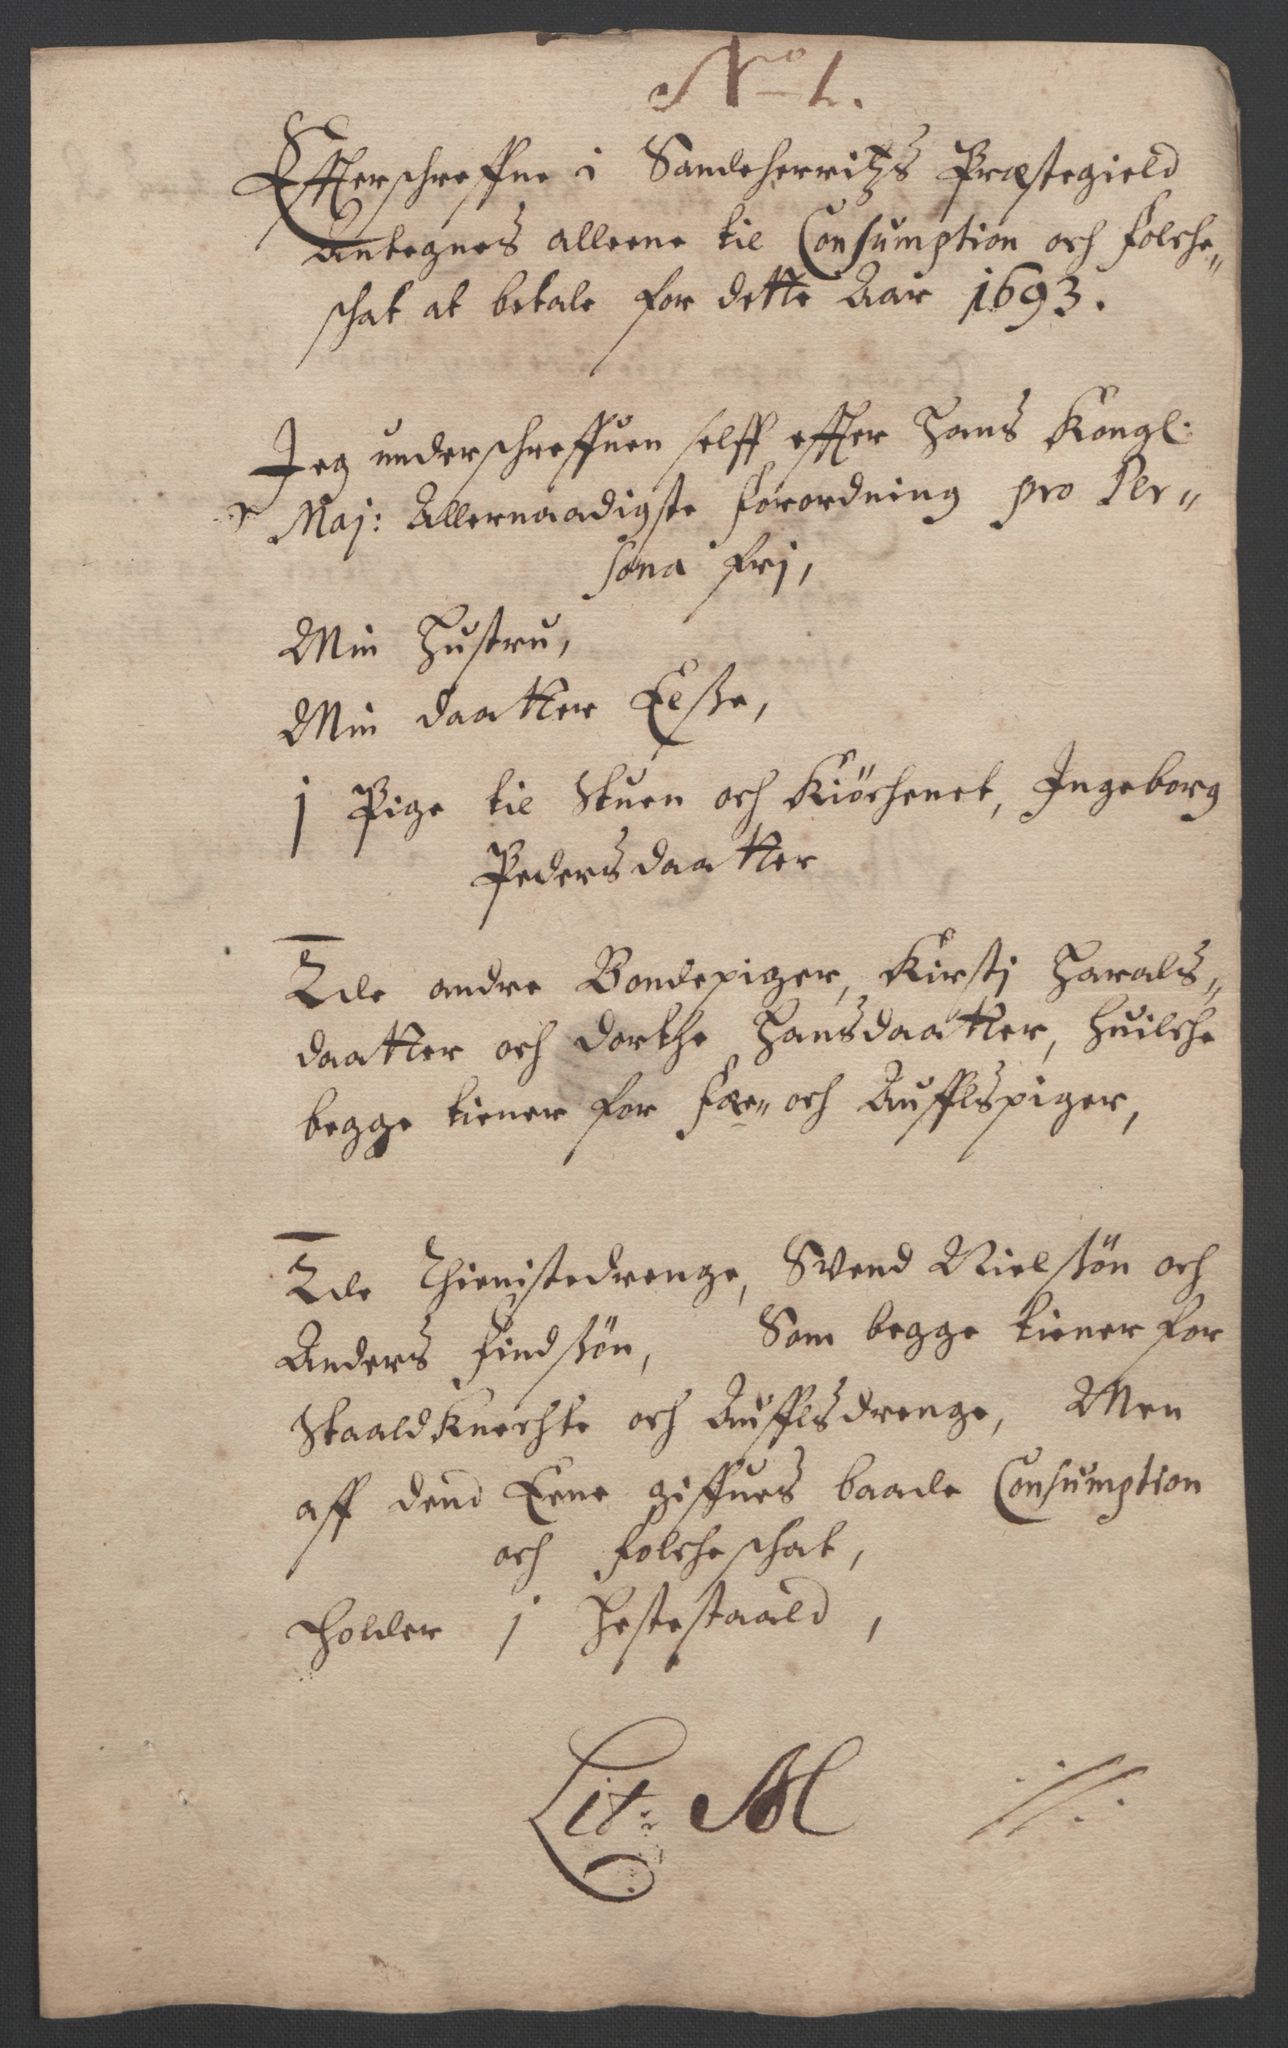 No 1.
Effterschreffne i Sandeherritzs Præstegield
Antegnes alleene til Consumption och folche„
schat at betale for dette Aar 1693.
Jeg underschreffuen selff effter Hans Kongl:
Maj: Allernaadigste forordning pro Per„
sona frj,
Min Hustru,
Min daatter Elsse,
1 Pige til Stuen och Kiöchenet, Ingeborg
Pedersdaatter
2de andre Bondepiger, Kirstj Harals„
daatter och dorthe Hansdaatter, huilche
begge tiener for fæe„ och Auffls piger,
2de Thienistedrenge, Svend Nielssön och
Anders findssön, Som begge tiener for
Staald Knechte och Auffls drenge, Men
aff dend Eene giffues baade Consumption
och folcheschat,
Holder 1 Hestestaald,
Lit: M